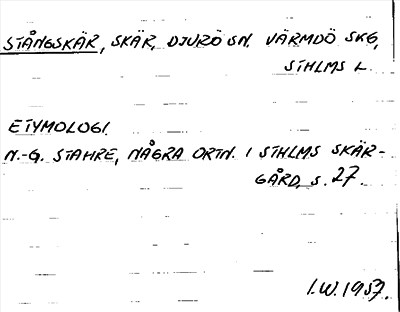 STÅNGSKÄR, SKÄR, DJURÖ SN. VÄRMDÖ SKG,
STHLMS L.
ETYMOLOGI.
N.-G. STAHRE, NÅGRA ORTN. I STHLMS SKÄR-
GÅRD, S. 27.
I.W. 1957.